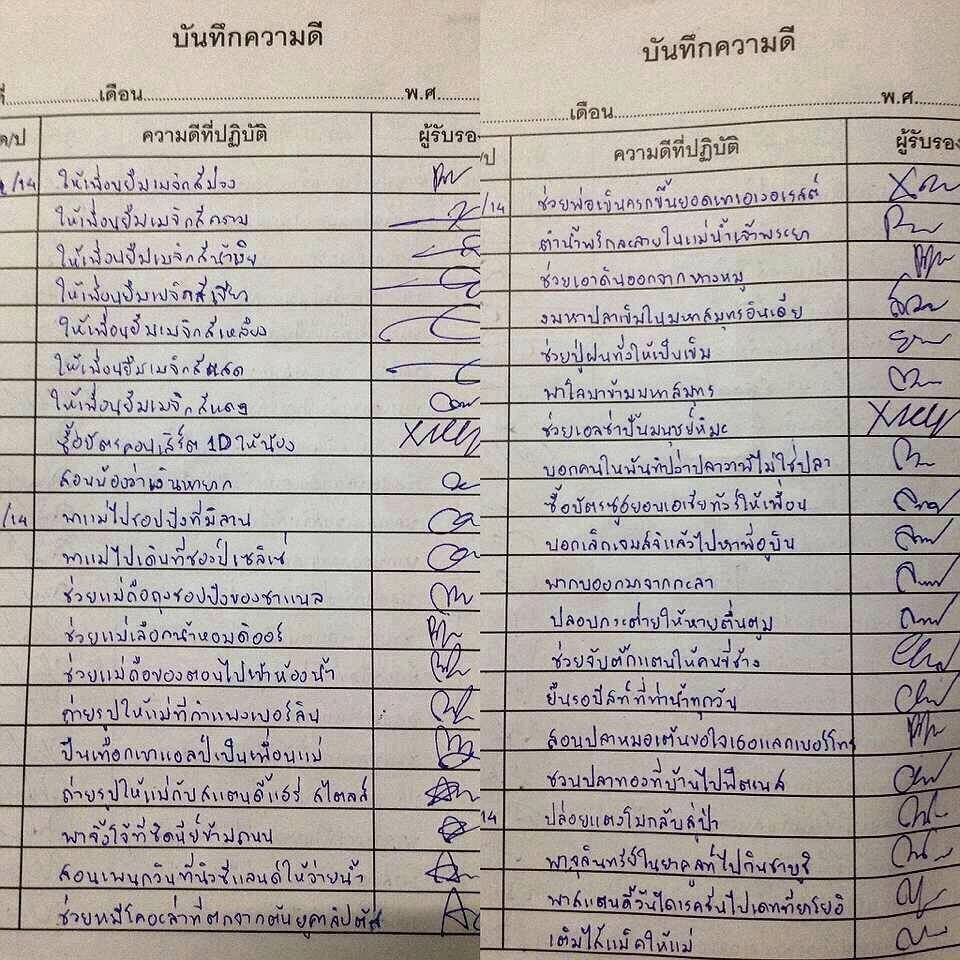 บันทึกความดี
ที่............เดือน............พ.ศ.......
ด/ป ความดีที่ปฏิบัติ ผู้รับรอง
/14 ให้เพื่อนยืมเมจิกสีม่วง
ให้เพื่อนยืมเมจิกสีคราม
ให้เพื่อนยืมเมจิกสีน้ำเงิน
ให้เพื่อนยืมเมจิกสีเขียว
ให้เพื่อนยืมเมจิกสีเหลือง
ให้เพื่อนยืมเมจิกสีแสด
ให้เพื่อนยืมเมจิกสีแดง
ซื้อบัตรคอนเสิร์ต 1D ให้น้อง
สอนน้องว่าเงินหายาก
/14 พาแม่ไปชอปปิงที่มิลาน
พาแม่ไปเดินที่ชองป์เซลิเซ่
ช่วยแม่ถือถุงชอปปิงของชาแนล
ช่วยแม่เลือกน้ำหอมดิออร์
ช่วยแม่ถือของตอนไปเข้าห้องน้ำ
ถ่ายรูปให้แม่ที่กำแพงเบอร์ลิน
ปีนเทือกเขาแอลป์เป็นเพื่อนแม่
ถ่ายรูปให้แม่กับสแตนดี้แฮร์รี่ สไตลส์
พาจิงโจ้ที่ซิดนีย์ข้ามถนน
สอนเพนกวินที่นิวซีแลนด์ให้ว่ายน้ำ
ช่วยหมีโคอะล่าที่ตกจากต้นยูคาลิปตัส
บันทึกความดี
............เดือน............พ.ศ.......
ป ความดีที่ปฏิบัติ ผู้รับรอง
/14 ช่วยพ่อเข็นครกขึ้นยอดเขาเอเวอเรสต์
ตำน้ำพริกละลายในแม่น้ำเจ้าพระยา
ช่วยเอาดินออกจากหางหมู
งมหาปลาเข็มในมหาสมุทรอินเดีย
ช่วยปู่ฝนทั่งให้เป็นเข็ม
พาใลมาข้ามมหาสมุทร
ช่วยเอลซ่าปั้นมนุษย์หิมะ
บอกคนในพันทิปว่าปลาวาฬไม่ใช่ปลา
ซื้อบัตรซูจูยอนเอเชียทัวร์ให้เพื่อน
บอกเลิกเจมส์จิแล้วไปหาพี่อูบิน
พากบออกมาจากกะลา
ปลอบกระต่ายให้หายตื่นตูม
ช่วยจับตั๊กแตนให้คนขี่ช้าง
ยืนรอปีสท์ที่ท่าน้ำทุกวัน
สอนปลาหมอเต้นขอใจเธอแลกเบอร์โทร
ชวนปลาทองที่บ้านไปฟิตเนส
14 ปล่อยแตงโมกลับสู่ป่า
พาจุลินทรีย์ในยาคูลท์ไปกินชาบูชิ
พาสแตนดี้วันไดเรคชั่นไปเดทที่ยาโยอิ
เติมไส้แม็คให้แม่